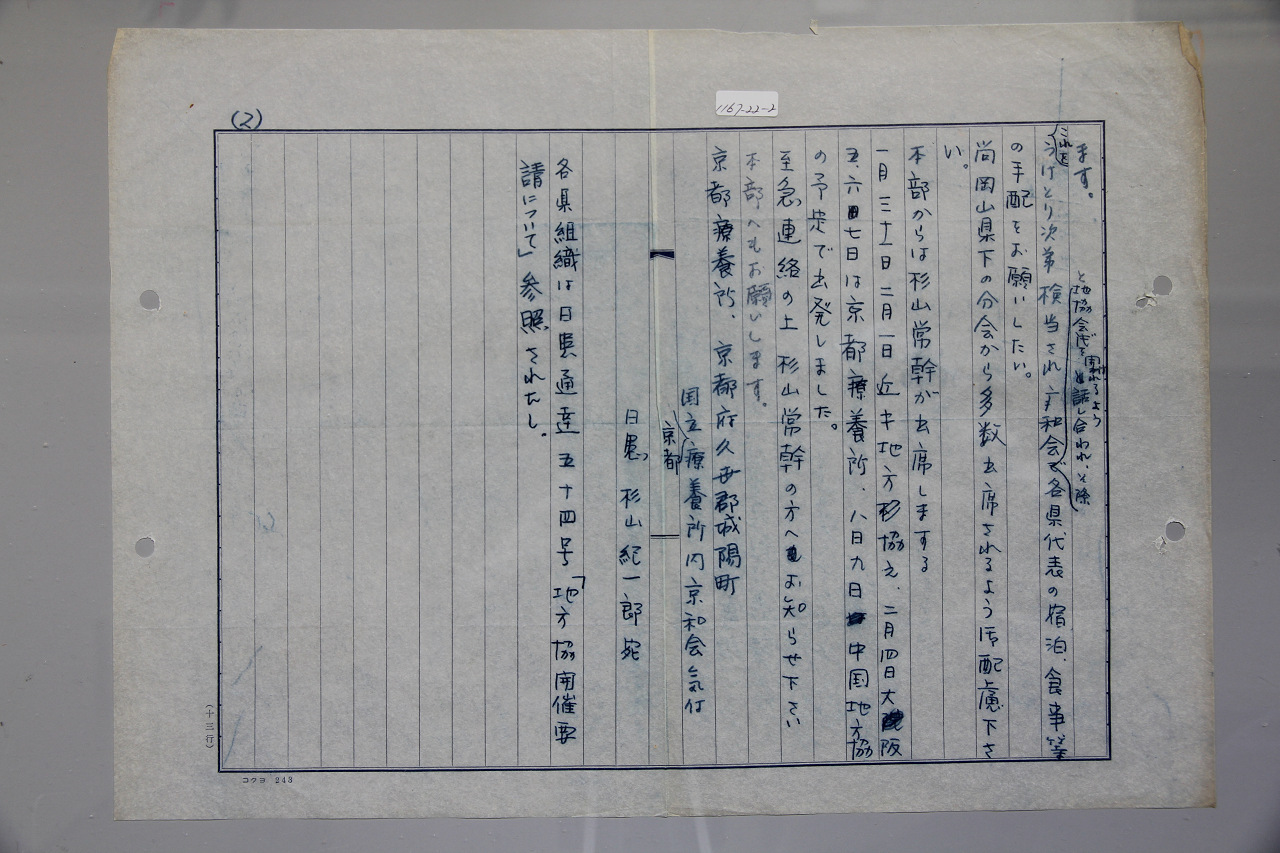 1167-22-2
(2)
ます。
と地協会代を
開かれるよう
話し合われ、と除
これを
うけとり次第検当され、
各県代表の宿泊、食事等
の手配をお願いしたい。
尚岡山県下の分会から多数出席されるよう御配慮下さ
い。
本部からは杉山常幹が出席しまする
一月三十一日二月一日近キ地方
協え、二月四日大阪
五、六七日は京都療養所、八日九日中国地方協
の予定で出発しました。
至急連絡の上 杉山常幹の方へお知らせ下さい
本部へもお願いします。
京都療養所、京都府久世郡城陽町
国立療養所内京和会気付
京都
日患 杉山紀一郎宛
各県組織は日患通達五十四号「地方協開催要
請について」参照されたし.
(十三行)
コクヨ 243